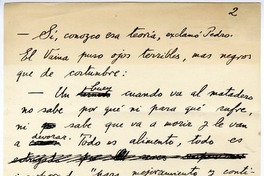 2
— Si, conozco esa teoría, exclamó Pedro.
El Vaina puso ojos terribles, mas negros
que de costumbre:
— Un buey cuando va al matadero
no sabe por qué ni para qué sufre,
ni sabe que va a morir y le van
a devorar. Todo es alimento, todo es
"para mejoramiento y conti-